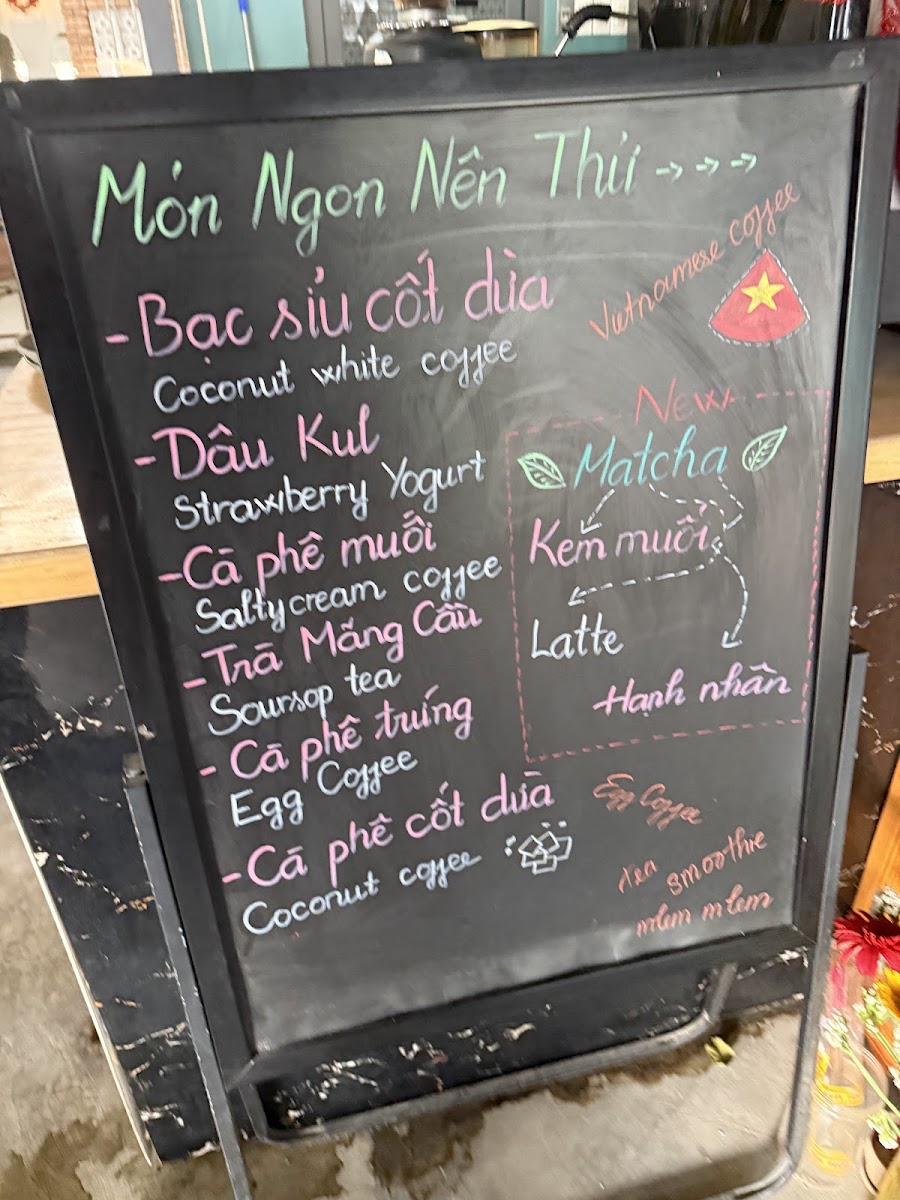 Món Ngon Nên Thử
Vietnamese coffee
- Bạc sỉu cốt dừa
Coconut white coffee
- Dâu Kul
Strawberry Yogurt
- Cà phê muối
Salty cream coffee
- Trà Mãng Cầu
Soursop tea
- Cà phê trứng
Egg Coffee
- Cà phê cốt dừa
Coconut coffee
New
Matcha
Kem muối
Latte
Hạnh nhân
Egg Coffee
Tea
smoothie
mlem mlem